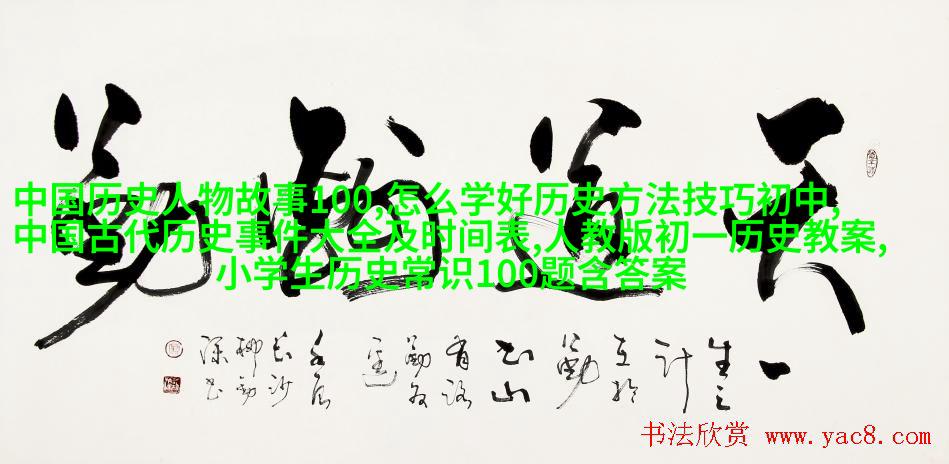 中国历史人物故事100,怎么学好历史方法技巧初中,
中国古代历史事件大全及时间表,人教版初一历史教案,
小学生历史常识100题含答案
天道酬勤
一
生之
计
在於
勤
书山
有路
勤为
长沙
书法欣赏 www.yac8.com